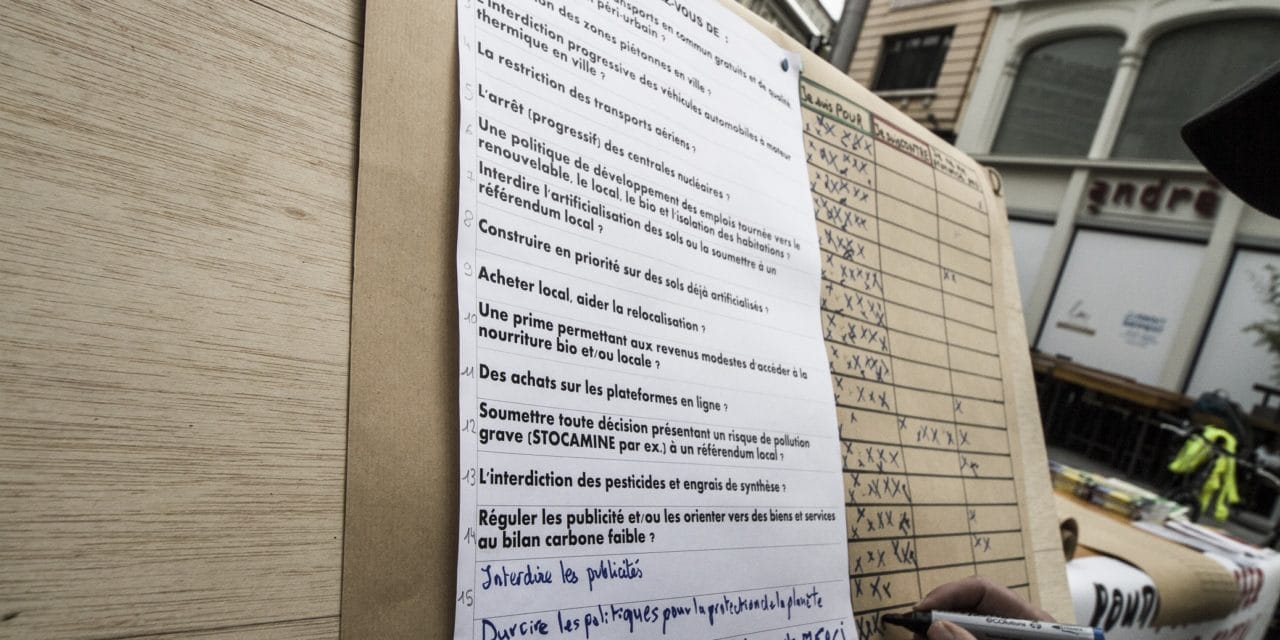 -VOUS DE :
transports en commun gratuits et de qualité
péri-urbain ?
des zones piétonnes en ville ?
3
L'interdiction progressive des véhicules automobiles à moteur
thermique en ville ?
4
La restriction des transports aériens ?
5
L'arrêt (progressif) des centrales nucléaires ?
6
Une politique de développement des emplois tournée vers le
renouvelable, le local, le bio et l'isolation des habitations ?
7
Interdire l'artificialisation des sols ou la soumettre à un
référendum local ?
8
Construire en priorité sur des sols déjà artificialisés ?
9
Acheter local, aider la relocalisation ?
10
Une prime permettant aux revenus modestes d'accéder à la
nourriture bio et/ou locale ?
11
Des achats sur les plateformes en ligne ?
12
Soumettre toute décision présentant un risque de pollution
grave (STOCAMINE par ex.) à un référendum local ?
13
L'interdiction des pesticides et engrais de synthèse ?
14
Réguler les publicité et/ou les orienter vers des biens et services
au bilan carbone faible ?
Interdire les publicités
15
Durcire les politiques pour la protection de la planète
MERCI
Je suis POUR
Je suis CONTRE
andré
POUR